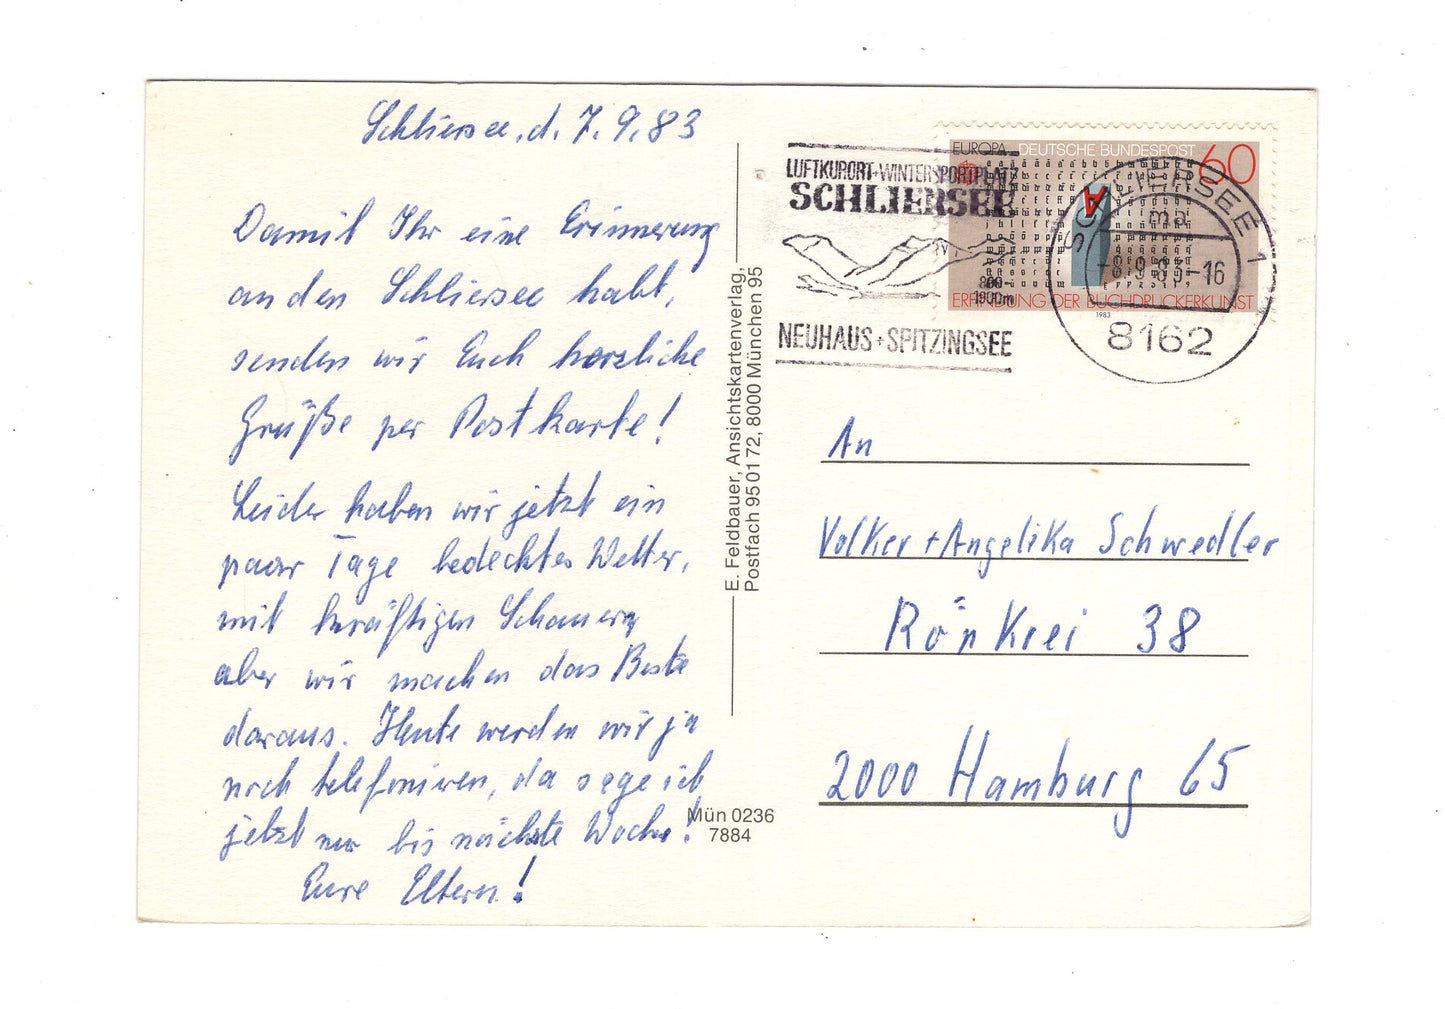 Schliersee, d. 7.9.83
Damit Ihr eine Erinnerung
an den Schliersee habt,
senden wir Euch herzliche
Grüße per Postkarte!
Leider haben wir jetzt ein
paar Tage bedecktes Wetter,
mit kräftigen Schauern
aber wir machen das Beste
daraus. Heute werden wir ja
noch telefonieren, da sage ich
jetzt nur bis nächste Woche!
Eure Eltern!
E. Feldbauer, Ansichtskartenverlag,
Postfach 95 01 72, 8000 München 95
Mün 0236
7884
LUFTKURORT+WINTERSPORTPLATZ
SCHLIERSEE
800-
1900m
NEUHAUS+SPITZINGSEE
EUROPA DEUTSCHE BUNDESPOST 60
ERFINDUNG DER BUCHDRUCKERKUNST
1983
SCHLIERSEE 1
ma
-8.9.83-16
8162
An
Volker + Angelika Schwedler
Rönkrei 38
2000 Hamburg 65